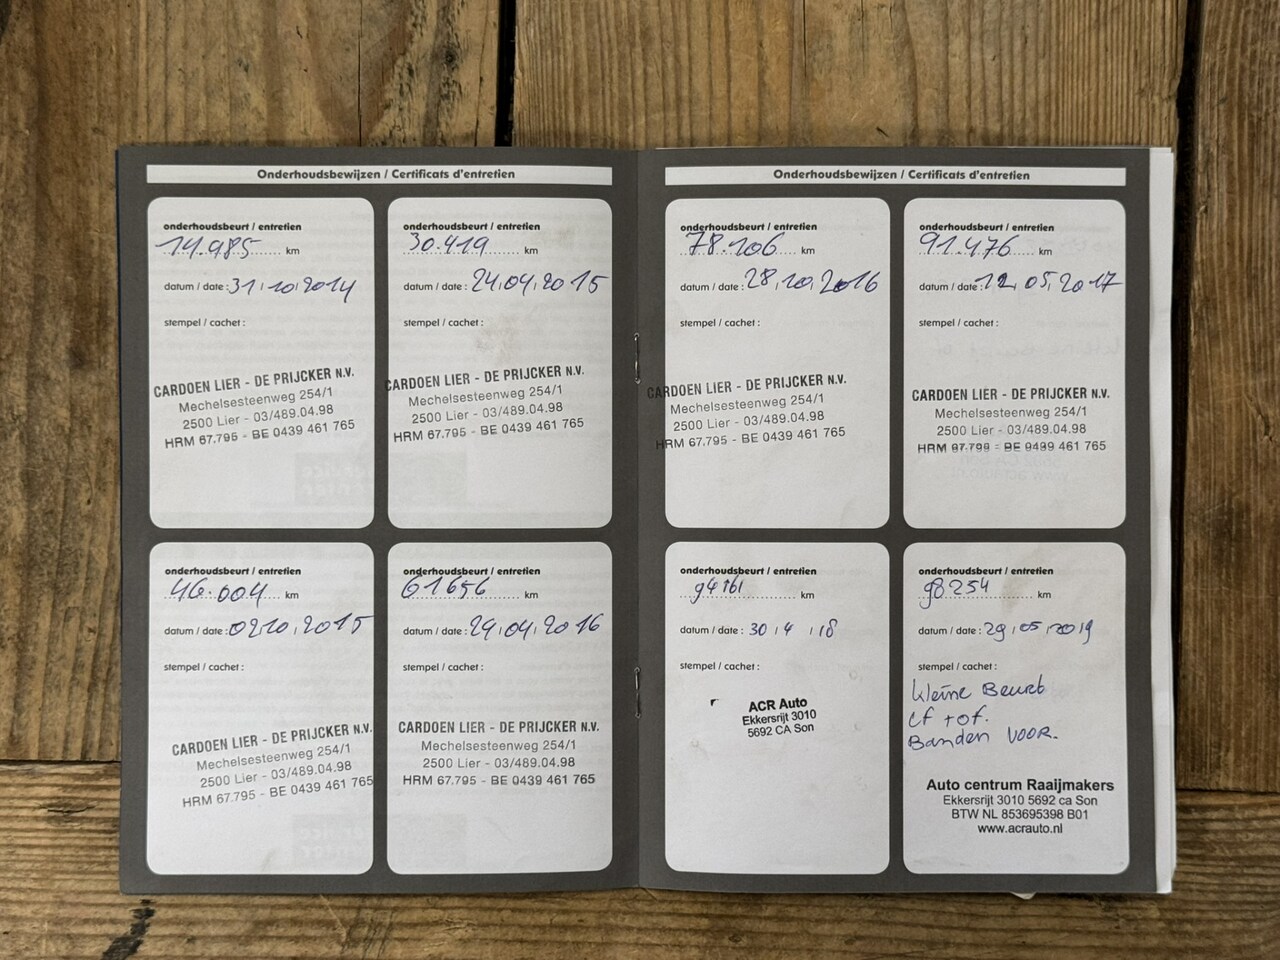 Onderhoudsbewijzen / Certificats d'entretien
onderhoudsbeurt / entretien
14.985 km
datum / date : 31.10.2014
stempel / cachet :
CARDOEN LIER - DE PRIJCKER N.V.
Mechelsesteenweg 254/1
2500 Lier - 03/489.04.98
HRM 67.795 - BE 0439 461 765
onderhoudsbeurt / entretien
30.419 km
datum / date : 24.04.2015
stempel / cachet :
CARDOEN LIER - DE PRIJCKER N.V.
Mechelsesteenweg 254/1
2500 Lier - 03/489.04.98
HRM 67.795 - BE 0439 461 765
onderhoudsbeurt / entretien
46.004 km
datum / date : 02.10.2015
stempel / cachet :
CARDOEN LIER - DE PRIJCKER N.V.
Mechelsesteenweg 254/1
2500 Lier - 03/489.04.98
HRM 67.795 - BE 0439 461 765
onderhoudsbeurt / entretien
61656 km
datum / date : 29.04.2016
stempel / cachet :
CARDOEN LIER - DE PRIJCKER N.V.
Mechelsesteenweg 254/1
2500 Lier - 03/489.04.98
HRM 67.795 - BE 0439 461 765
Onderhoudsbewijzen / Certificats d'entretien
onderhoudsbeurt / entretien
78.106 km
datum / date : 28.10.2016
stempel / cachet :
CARDOEN LIER - DE PRIJCKER N.V.
Mechelsesteenweg 254/1
2500 Lier - 03/489.04.98
HRM 67.795 - BE 0439 461 765
onderhoudsbeurt / entretien
91.476 km
datum / date : 12.05.2017
stempel / cachet :
CARDOEN LIER - DE PRIJCKER N.V.
Mechelsesteenweg 254/1
2500 Lier - 03/489.04.98
HRM 67.795 - BE 0439 461 765
onderhoudsbeurt / entretien
94161 km
datum / date : 30 / 4 / 18
stempel / cachet :
ACR Auto
Ekkersrijt 3010
5692 CA Son
onderhoudsbeurt / entretien
98254 km
datum / date : 29.05.2019
stempel / cachet :
Kleine Beurt
LF + OF.
Banden VOOR.
Auto centrum Raaijmakers
Ekkersrijt 3010 5692 ca Son
BTW NL 853695398 B01
www.acrauto.nl